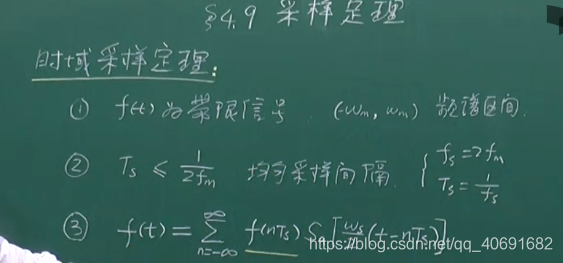 §4.9 采样定理
时域采样定理:
① f(t)为带限信号. (-ωm, ωm) 频谱区间.
② Ts ≤ 1/2fm 均匀采样间隔. { fs=2fm Ts=1/fs
③ f(t) = ∑_{n=-∞}^{∞} f(nTs) Sa[ωs/2(t-nTs)]
https://blog.csdn.net/qq_40691682